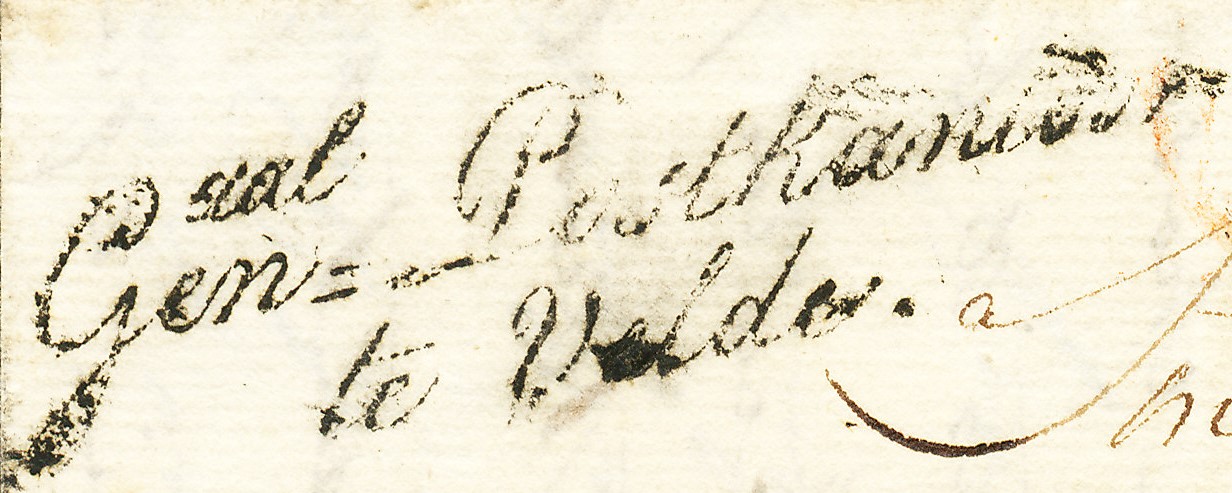 Gen=ral - Postkantoor
te Velde.
a